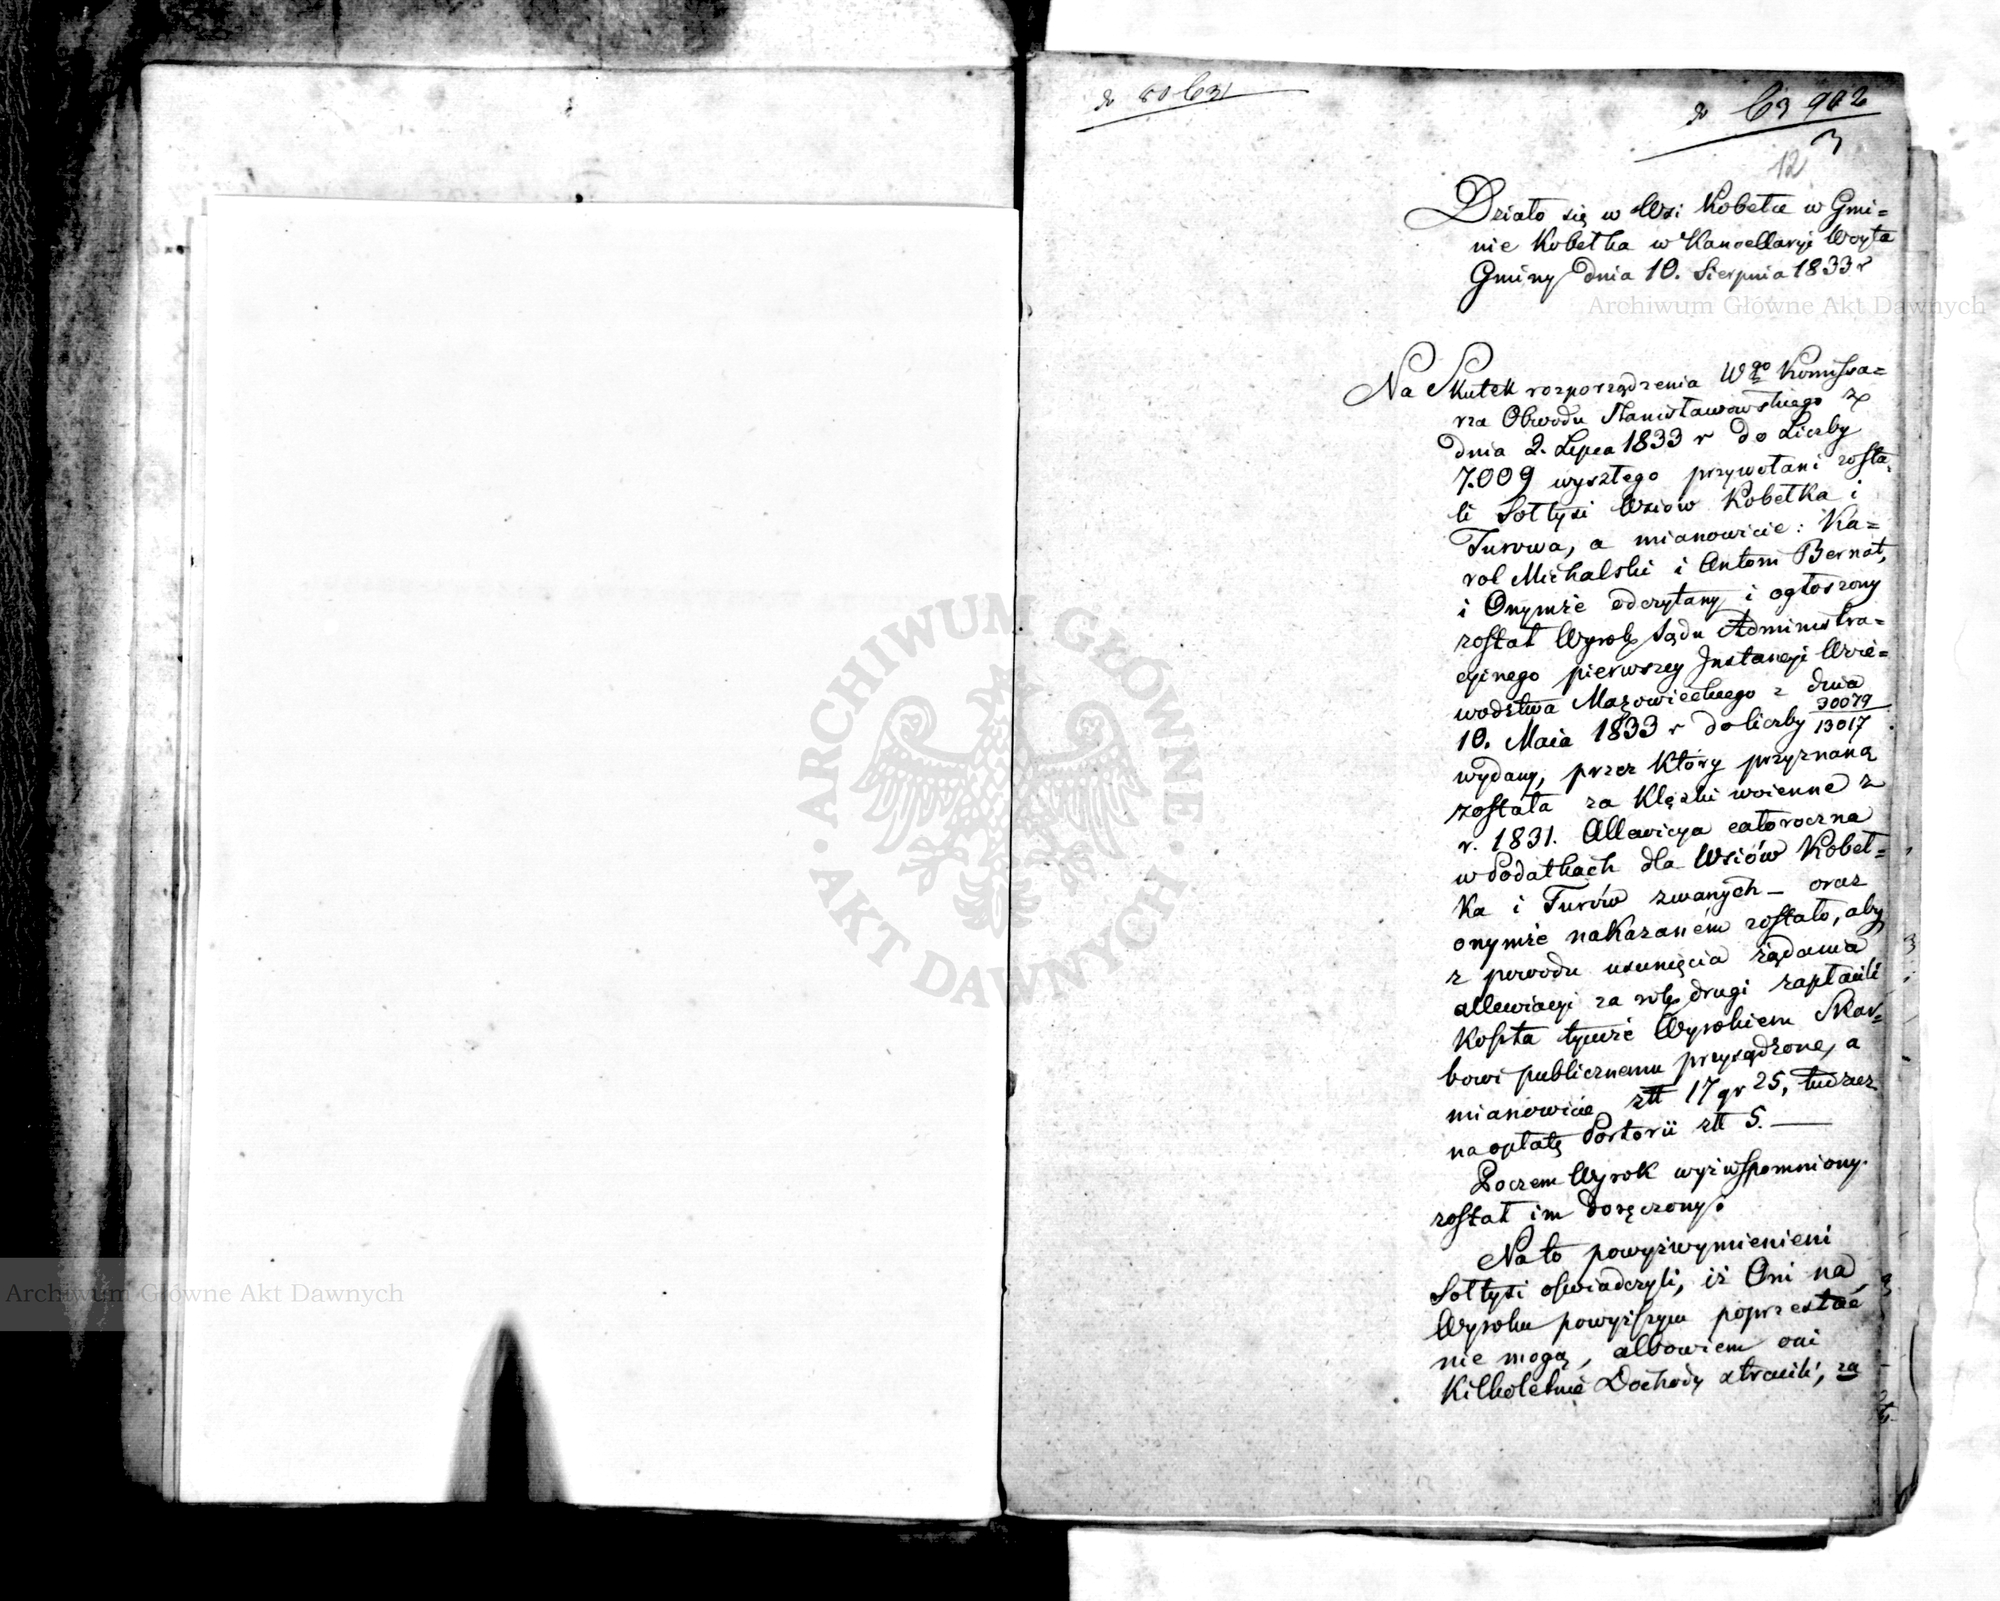 do 63 902
3
12
Działo się w Wsi Kobełce w Gmi=
nie Kobełka w Kancellaryi Woyta
Gminy dnia 10. Sierpnia 1833 r
Archiwum Główne Akt Dawnych
Na Skutek rozporządzenia Wgo Kommissa=
rza Obwodu Stanisławowskiego z
dnia 2. Lipca 1833 r do Liczby
7.009 wyszłego przywołani zosta=
li Sołtysi Wsiow Kobełka i
Turowa, a mianowicie: Ka=
rol Michalski i Antoni Bernat,
i Onymże odczytany i ogłoszony
został Wyrok Sądu Administra=
cyinego pierwszey Instancyi Woie=
wodztwa Mazowieckiego z dnia
10. Maia 1833 r do liczby 30079/13017
wydany, przez który przyznaną
została za Klęski woienne z
r. 1831. Allewicya całoroczna
w Podatkach dla Wsiów Kobeł=
ka i Turów zwanych – oraz
onymże nakazaném zostało, aby
z powodu usunięcia żądania
allewiacyi za rok drugi zapłacili
Koszta tymże Wyrokiem Skar=
bowi publicznemu przysądzone, a
mianowicie złł 17 gr 25, tudzież
na opłatę Portorii złł 5. —
Poczem Wyrok wyżwspomniony
został im doręczony.
Na to powyżwymienieni
Sołtysi oświadczyli, iż Oni na
Wyroku powyższym poprzestać
nie mogą, albowiem oni
Kilkoletnie Dochody stracili, za
ARCHIWUM GŁÓWNE
AKT DAWNYCH
Archiwum Główne Akt Dawnych